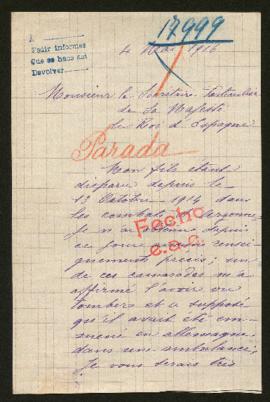 17.999
Pedir informes
Que se haus aut
Devolver
4 Mai 1916
Monsieur le Secrétaire Particulier
de Sa Majesté
le Roi d'Espagne
Parada
Mon fils étant
disparu depuis le
13 Octobre 1914 dans
les combats d'Argonne,
je n'ai obtenu depuis
ce jour aucun rensei-
gnements précis ; un
de ces camarades m'a
affirmé l'avoir vu
tomber et a supposé
qu'il avait été em-
mené en allemagne
dans une ambulance.
Je vous serais très
Fecho